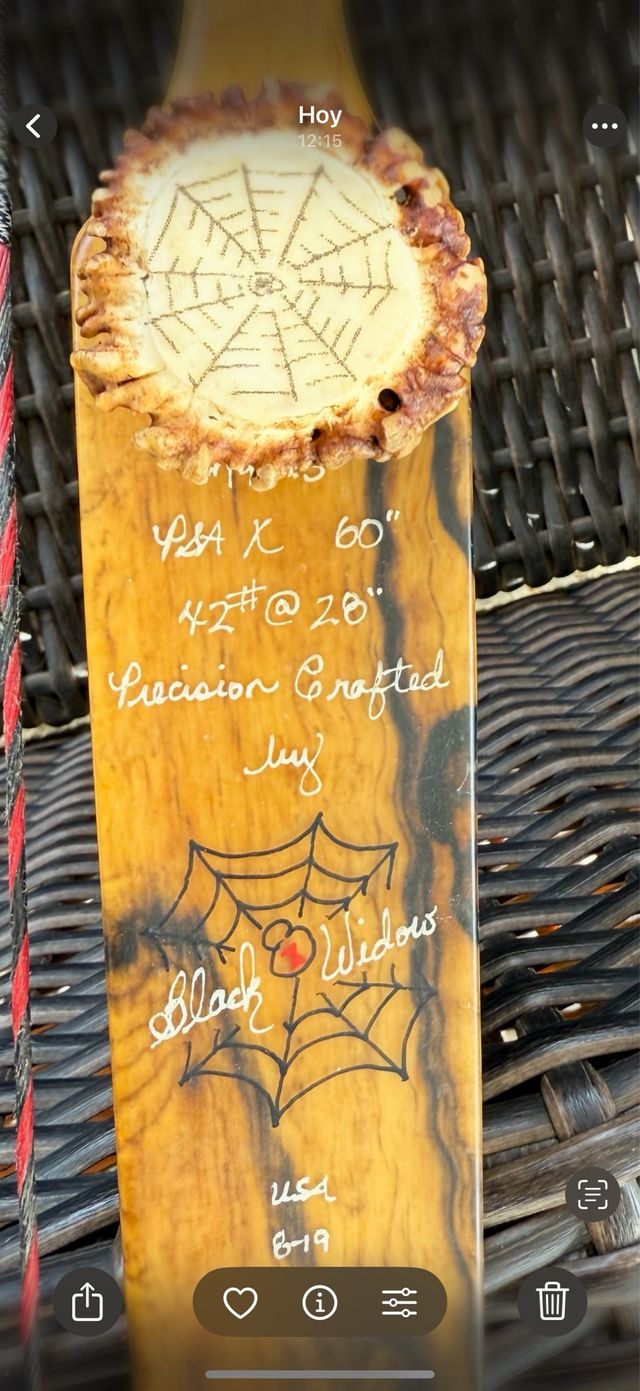 Hoy
12:15
PSA X 60"
42# @ 28"
Precision Crafted
by
Black Widow
USA
8-19